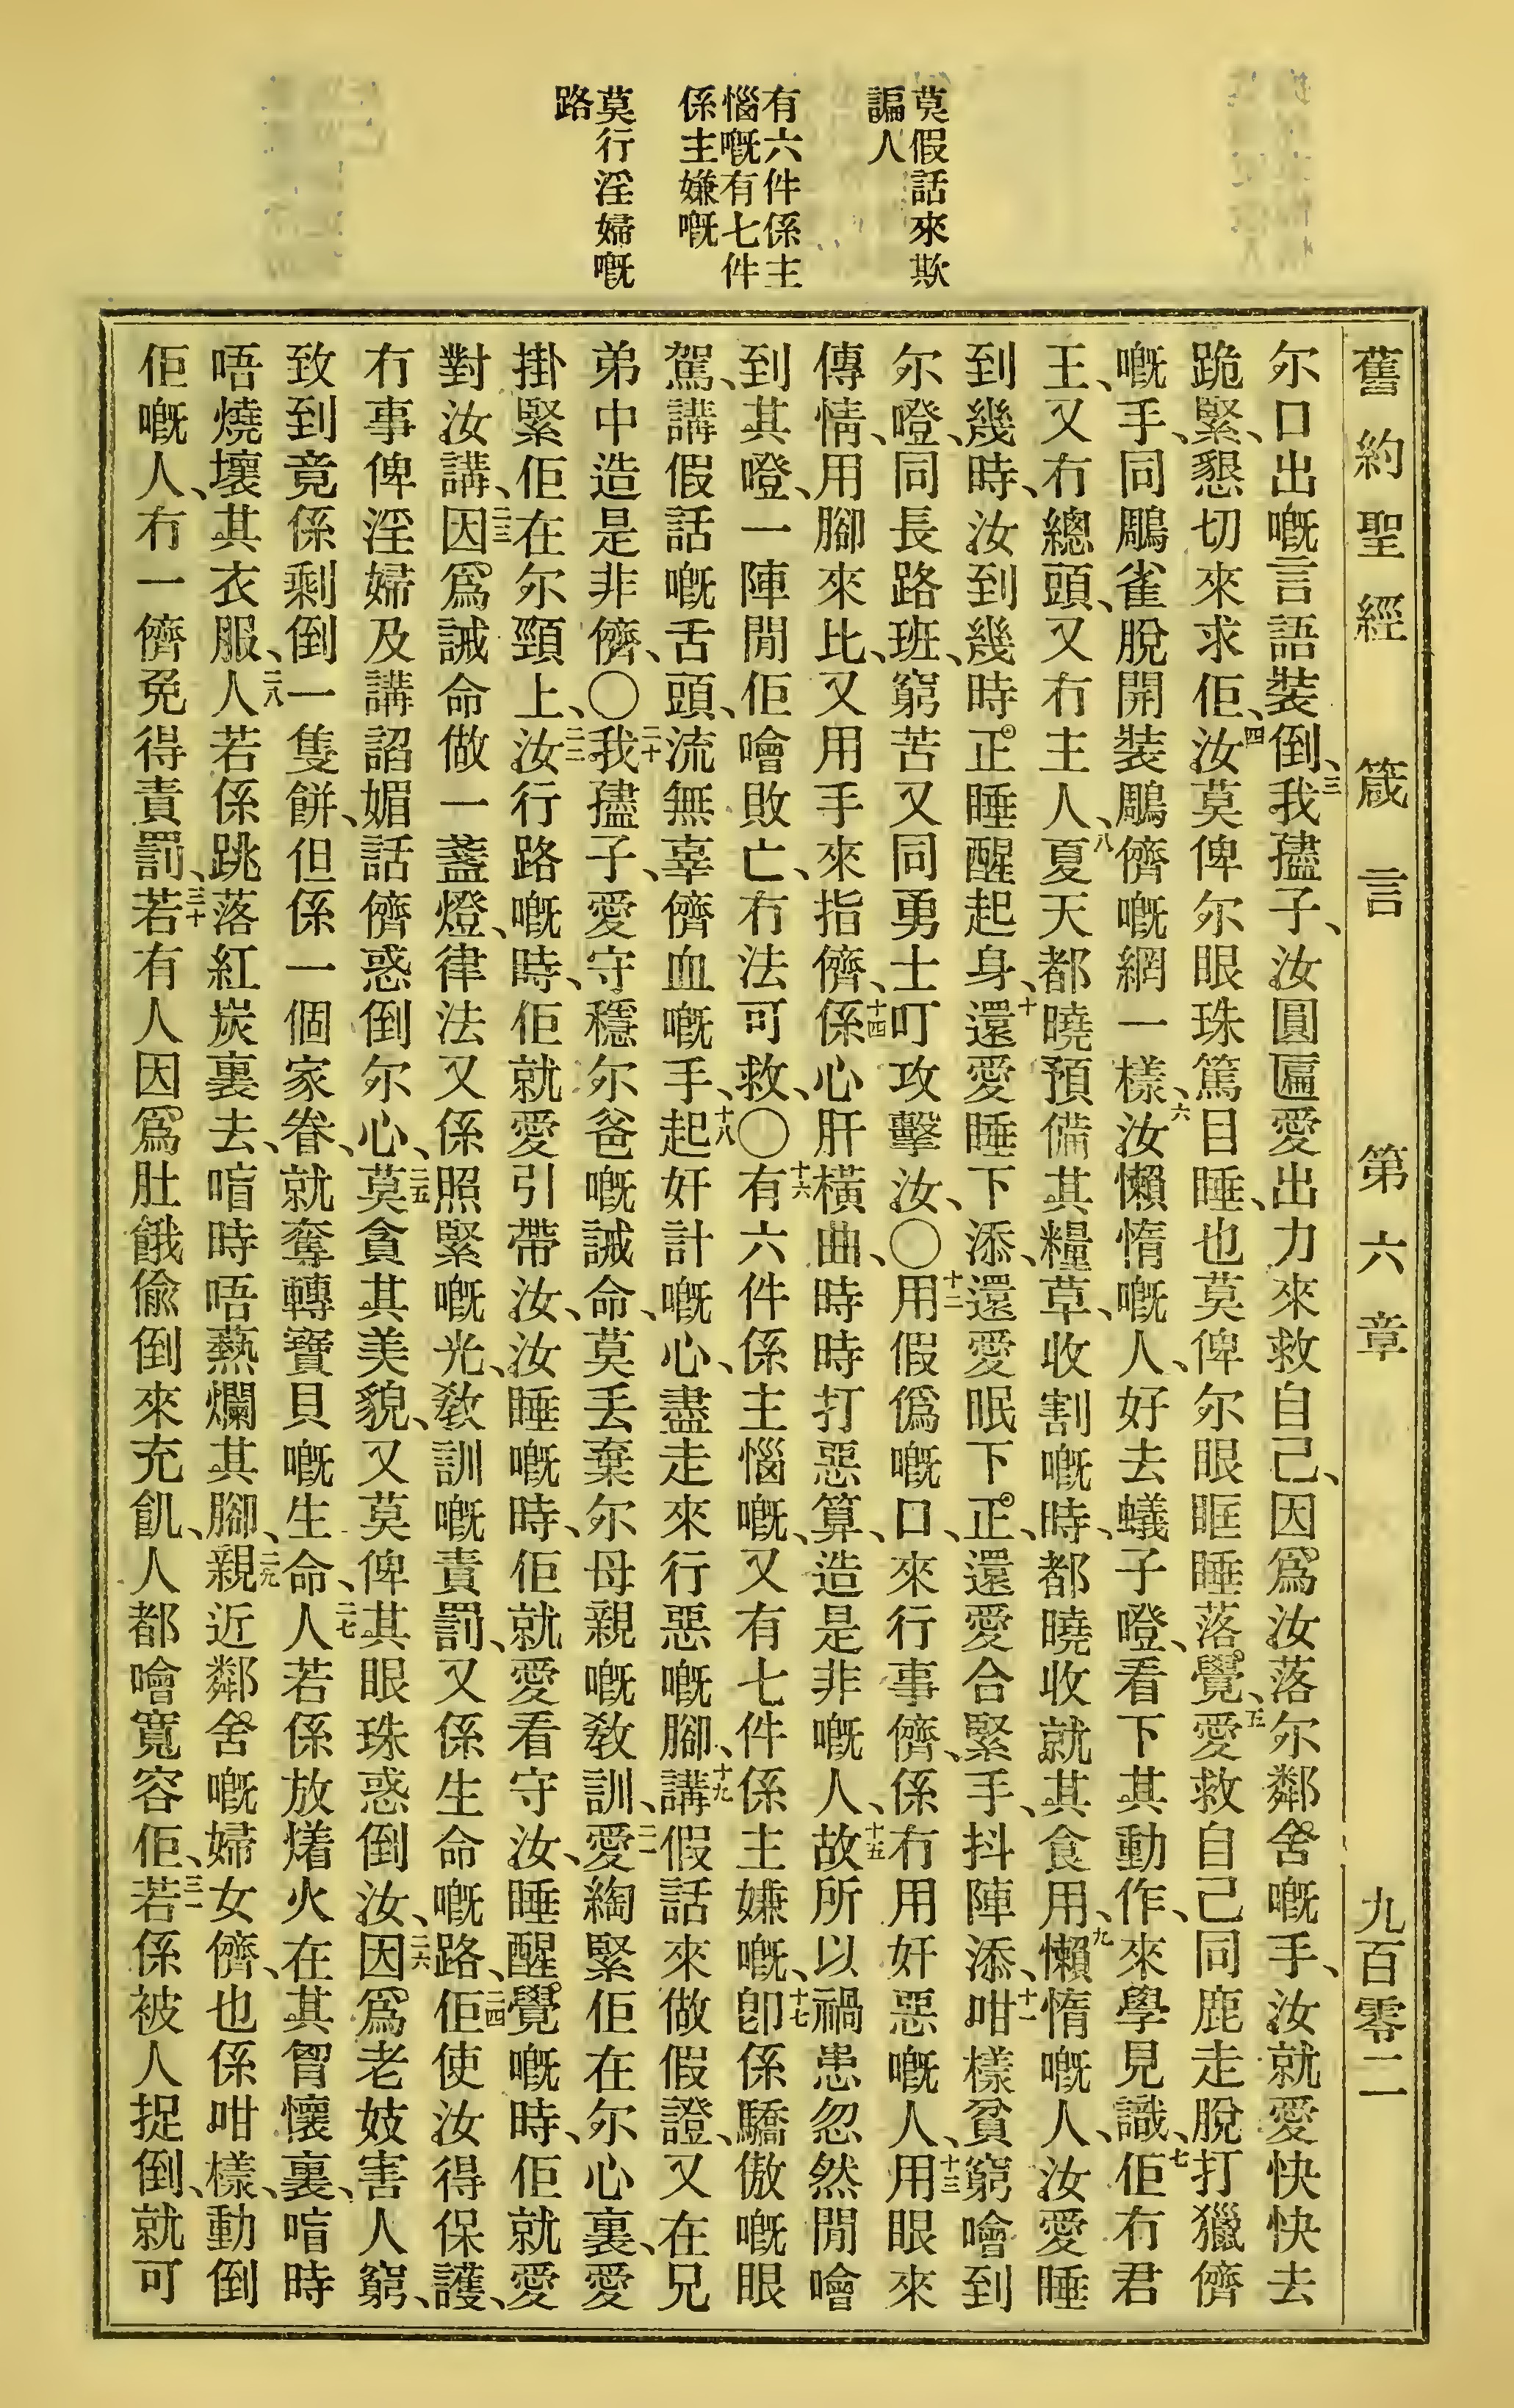 莫假話來欺
謆人
有六件係主
惱嘅有七件
係主嫌嘅
莫行淫婦嘅
路
舊約聖經 箴言 第六章 九百零二
尔口出嘅言語裝倒、三我孻子、汝圓匾愛出力來救自己、因爲汝落尔鄰舍嘅手、汝就愛快快去
跪緊、懇切來求佢、四汝莫俾尔眼珠篤目睡、也莫俾尔眼眶睡落覺、五愛救自己同鹿走脫打獵儕
嘅手、同鵰雀脫開裝鵰儕嘅網一樣、六汝懶惰嘅人、好去蟻子噔、看下其動作、來學見識、七佢冇君
王、又冇總頭、又冇主人、八夏天都曉預備其糧草、收割嘅時、都曉收就其食用、九懶惰嘅人、汝愛睡
到幾時、汝到幾時正睡醒起身、十還愛睡下添、還愛眠下正、還愛合緊手、抖陣添、十一咁樣貧窮噲到
尔噔、同長路班、窮苦又同勇士叮攻擊汝、〇十二用假僞嘅口、來行事儕、係冇用奸惡嘅人、十三用眼來
傳情、用腳來比、又用手來指儕、十四係心肝橫曲、時時打惡算、造是非嘅人、十五故所以禍患忽然閒噲
到其噔、一陣閒佢噲敗亡、冇法可救、〇十六有六件係主惱嘅、又有七件係主嫌嘅、十七卽係驕傲嘅眼
駕、講假話嘅舌頭、流無辜儕血嘅手、十八起奸計嘅心、盡走來行惡嘅腳、十九講假話來做假證、又在兄
弟中造是非儕、〇二十我孻子、愛守穩尔爸嘅誡命、莫丟棄尔母親嘅敎訓、二一愛綯緊佢在尔心裏、愛
掛緊佢在尔頸上、二二汝行路嘅時、佢就愛引帶汝、汝睡嘅時、佢就愛看守汝、睡醒覺嘅時、佢就愛
對汝講、二三因爲誡命做一盞燈、律法又係照緊嘅光、敎訓嘅責罰、又係生命嘅路、二四佢使汝得保護、
冇事俾淫婦及講諂媚話儕惑倒尔心、二五莫貪其美貌、又莫俾其眼珠惑倒汝、二六因爲老妓害人窮、
致到竟係剩倒一隻餅、但係一個家眷、就奪轉寶貝嘅生命、二七人若係放㷮火在其胷懷裏、㖞時
唔燒壞其衣服、二八人若係跳落紅炭裏去、㖞時唔爇爛其腳、二九親近鄰舍嘅婦女儕、也係咁樣、動倒
佢嘅人、冇一儕免得責罰、三十若有人因爲肚餓偸倒來充飢、人都噲寬容佢、三一若係被人捉倒、就可